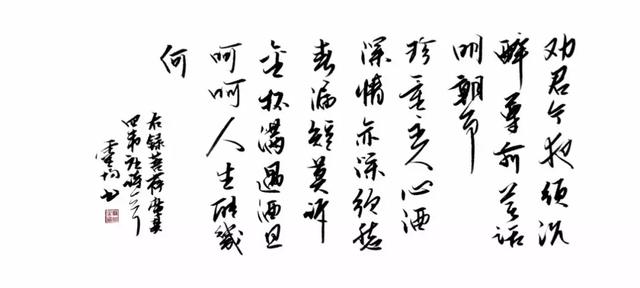 劝君今夜须沉
醉尊前莫话
明朝事
珍重主人心酒
深情亦深须愁
春漏短莫诉
金杯满遇酒且
呵呵人生能几
何
右录菩萨蛮其
四韦庄词
书